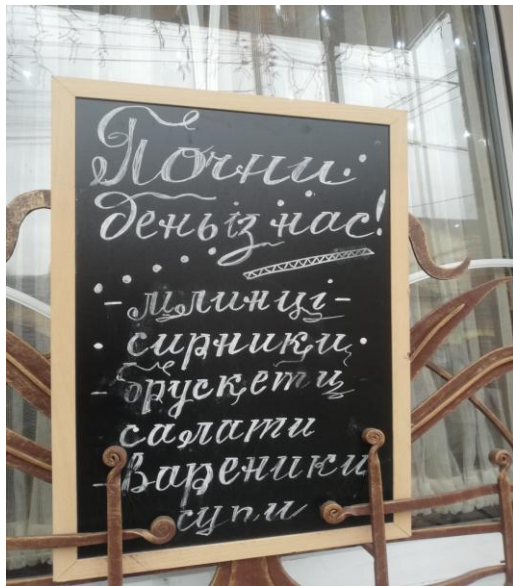 Почни
день із нас!
- млинці -
• сирники •
- брускети
салати
- вареники
супи